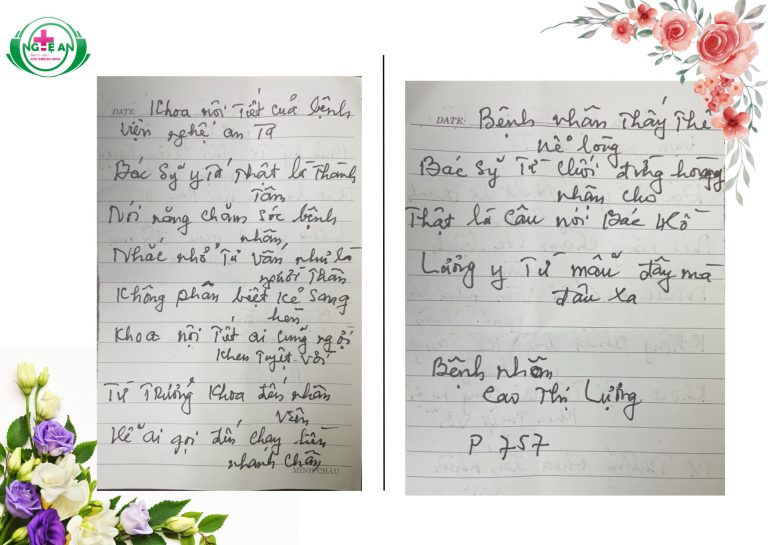 NGHỆ AN
DATE: Khoa nội Tiết của bệnh
viện nghệ an Ta
Bác sỹ y Tá Thật là Thành
Tâm
Nói năng chăm sóc bệnh
nhân
Nhắc nhở Tư vấn như là
người Thân
Không phân biệt kẻ sang
hèn
Khoa nội Tiết ai cũng ngợi
khen Tuyệt vời
Từ Trưởng Khoa đến nhân
viên
Hễ ai gọi đến chạy liền
nhanh chân
MINH CHÂU
DATE: Bệnh nhân Thấy Thế
nể lòng
Bác sỹ Từ chối đừng hòng
nhận cho
Thật là câu nói Bác Hồ
Lương y Từ mẫu đây mà
đâu xa
Bệnh nhân
Cao Thị Lượng
P 757